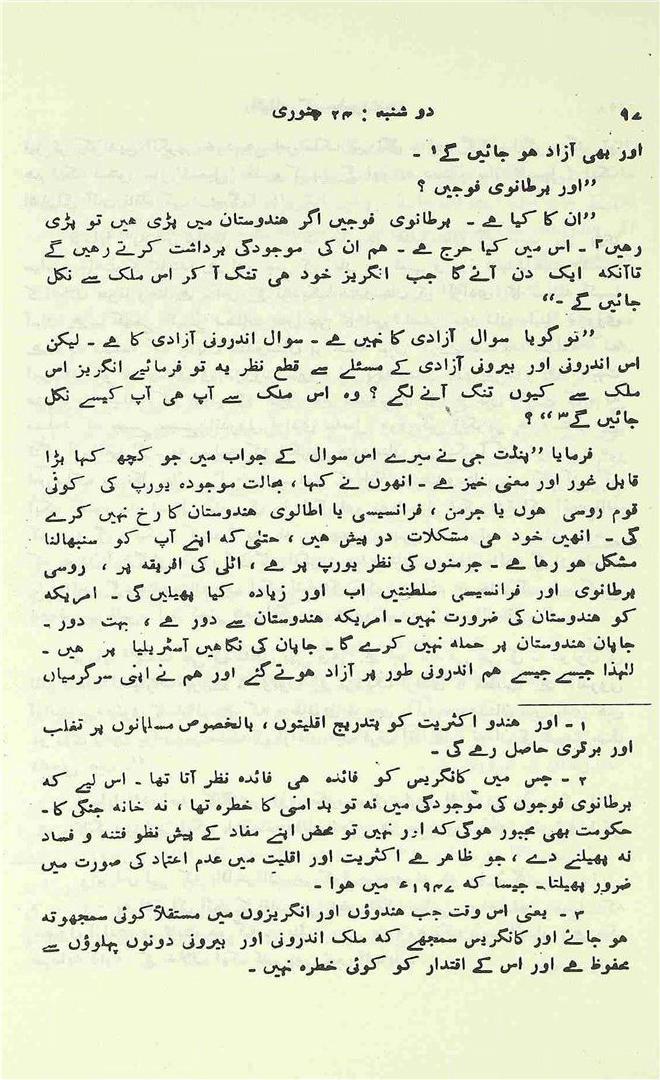 ۹۷ دو شنبہ : ۲۴ جنوری
اور بھی آزاد ہو جائیں گے۱ ۔
”اور برطانوی فوجیں ؟
”ان کا کیا ہے ۔ برطانوی فوجیں اگر ہندوستان میں پڑی ہیں تو پڑی
رہیں۲ ۔ اس میں کیا حرج ہے ۔ ہم ان کی موجودگی برداشت کرتے رہیں گے
تاآنکہ ایک دن آئے گا جب انگریز خود ہی تنگ آ کر اس ملک سے نکل
جائیں گے ۔“
”تو گویا سوال آزادی کا نہیں ہے ۔ سوال اندرونی آزادی کا ہے ۔ لیکن
اس اندرونی اور بیرونی آزادی کے مسئلے سے قطع نظر یہ تو فرمائیے انگریز اس
ملک سے کیوں تنگ آنے لگے ؟ وہ اس ملک سے آپ ہی آپ کیسے نکل
جائیں گے۳“ ؟
فرمایا ”پنڈت جی نے میرے اس سوال کے جواب میں جو کچھ کہا بڑا
قابل غور اور معنی خیز ہے ۔ انھوں نے کہا ، بحالت موجودہ یورپ کی کوئی
قوم روسی ہوں یا جرمن ، فرانسیسی یا اطالوی ہندوستان کا رخ نہیں کرے
گی ۔ انھیں خود ہی مشکلات در پیش ہیں ، حتیٰ کہ اپنے آپ کو سنبھالنا
مشکل ہو رہا ہے ۔ جرمنوں کی نظر یورپ پر ہے ، اٹلی کی افریقہ پر ، روسی
برطانوی اور فرانسیسی سلطنتیں اب اور زیادہ کیا پھیلیں گی ۔ امریکہ
کو ہندوستان کی ضرورت نہیں ۔ امریکہ ہندوستان سے دور ہے ، بہت دور ۔
جاپان ہندوستان پر حملہ نہیں کرے گا ۔ جاپان کی نگاہیں آسٹریلیا پر ہیں ۔
لہٰذا جیسے جیسے ہم اندرونی طور پر آزاد ہوتے گئے اور ہم نے اپنی سرگرمیاں
۱ ۔ اور ہندو اکثریت کو بتدریج اقلیتوں ، بالخصوص مسلمانوں پر تغلب
اور برتری حاصل رہے گی ۔
۲ ۔ جس میں کانگریس کو فائدہ ہی فائدہ نظر آتا تھا ۔ اس لیے کہ
برطانوی فوجوں کی موجودگی میں نہ تو بد امنی کا خطرہ تھا ، نہ خانہ جنگی کا ۔
حکومت بھی مجبور ہوگی کہ اور نہیں تو محض اپنے مفاد کے پیش نظر فتنہ و فساد
نہ پھیلنے دے ، جو ظاہر ہے اکثریت اور اقلیت میں عدم اعتماد کی صورت میں
ضرور پھیلتا ۔ جیسا کہ ۱۹۴۷ء میں ہوا ۔
۳ ۔ یعنی اس وقت جب ہندوؤں اور انگریزوں میں مستقلاً کوئی سمجھوتہ
ہو جائے اور کانگریس سمجھے کہ ملک اندرونی اور بیرونی دونوں پہلوؤں سے
محفوظ ہے اور اس کے اقتدار کو کوئی خطرہ نہیں ۔